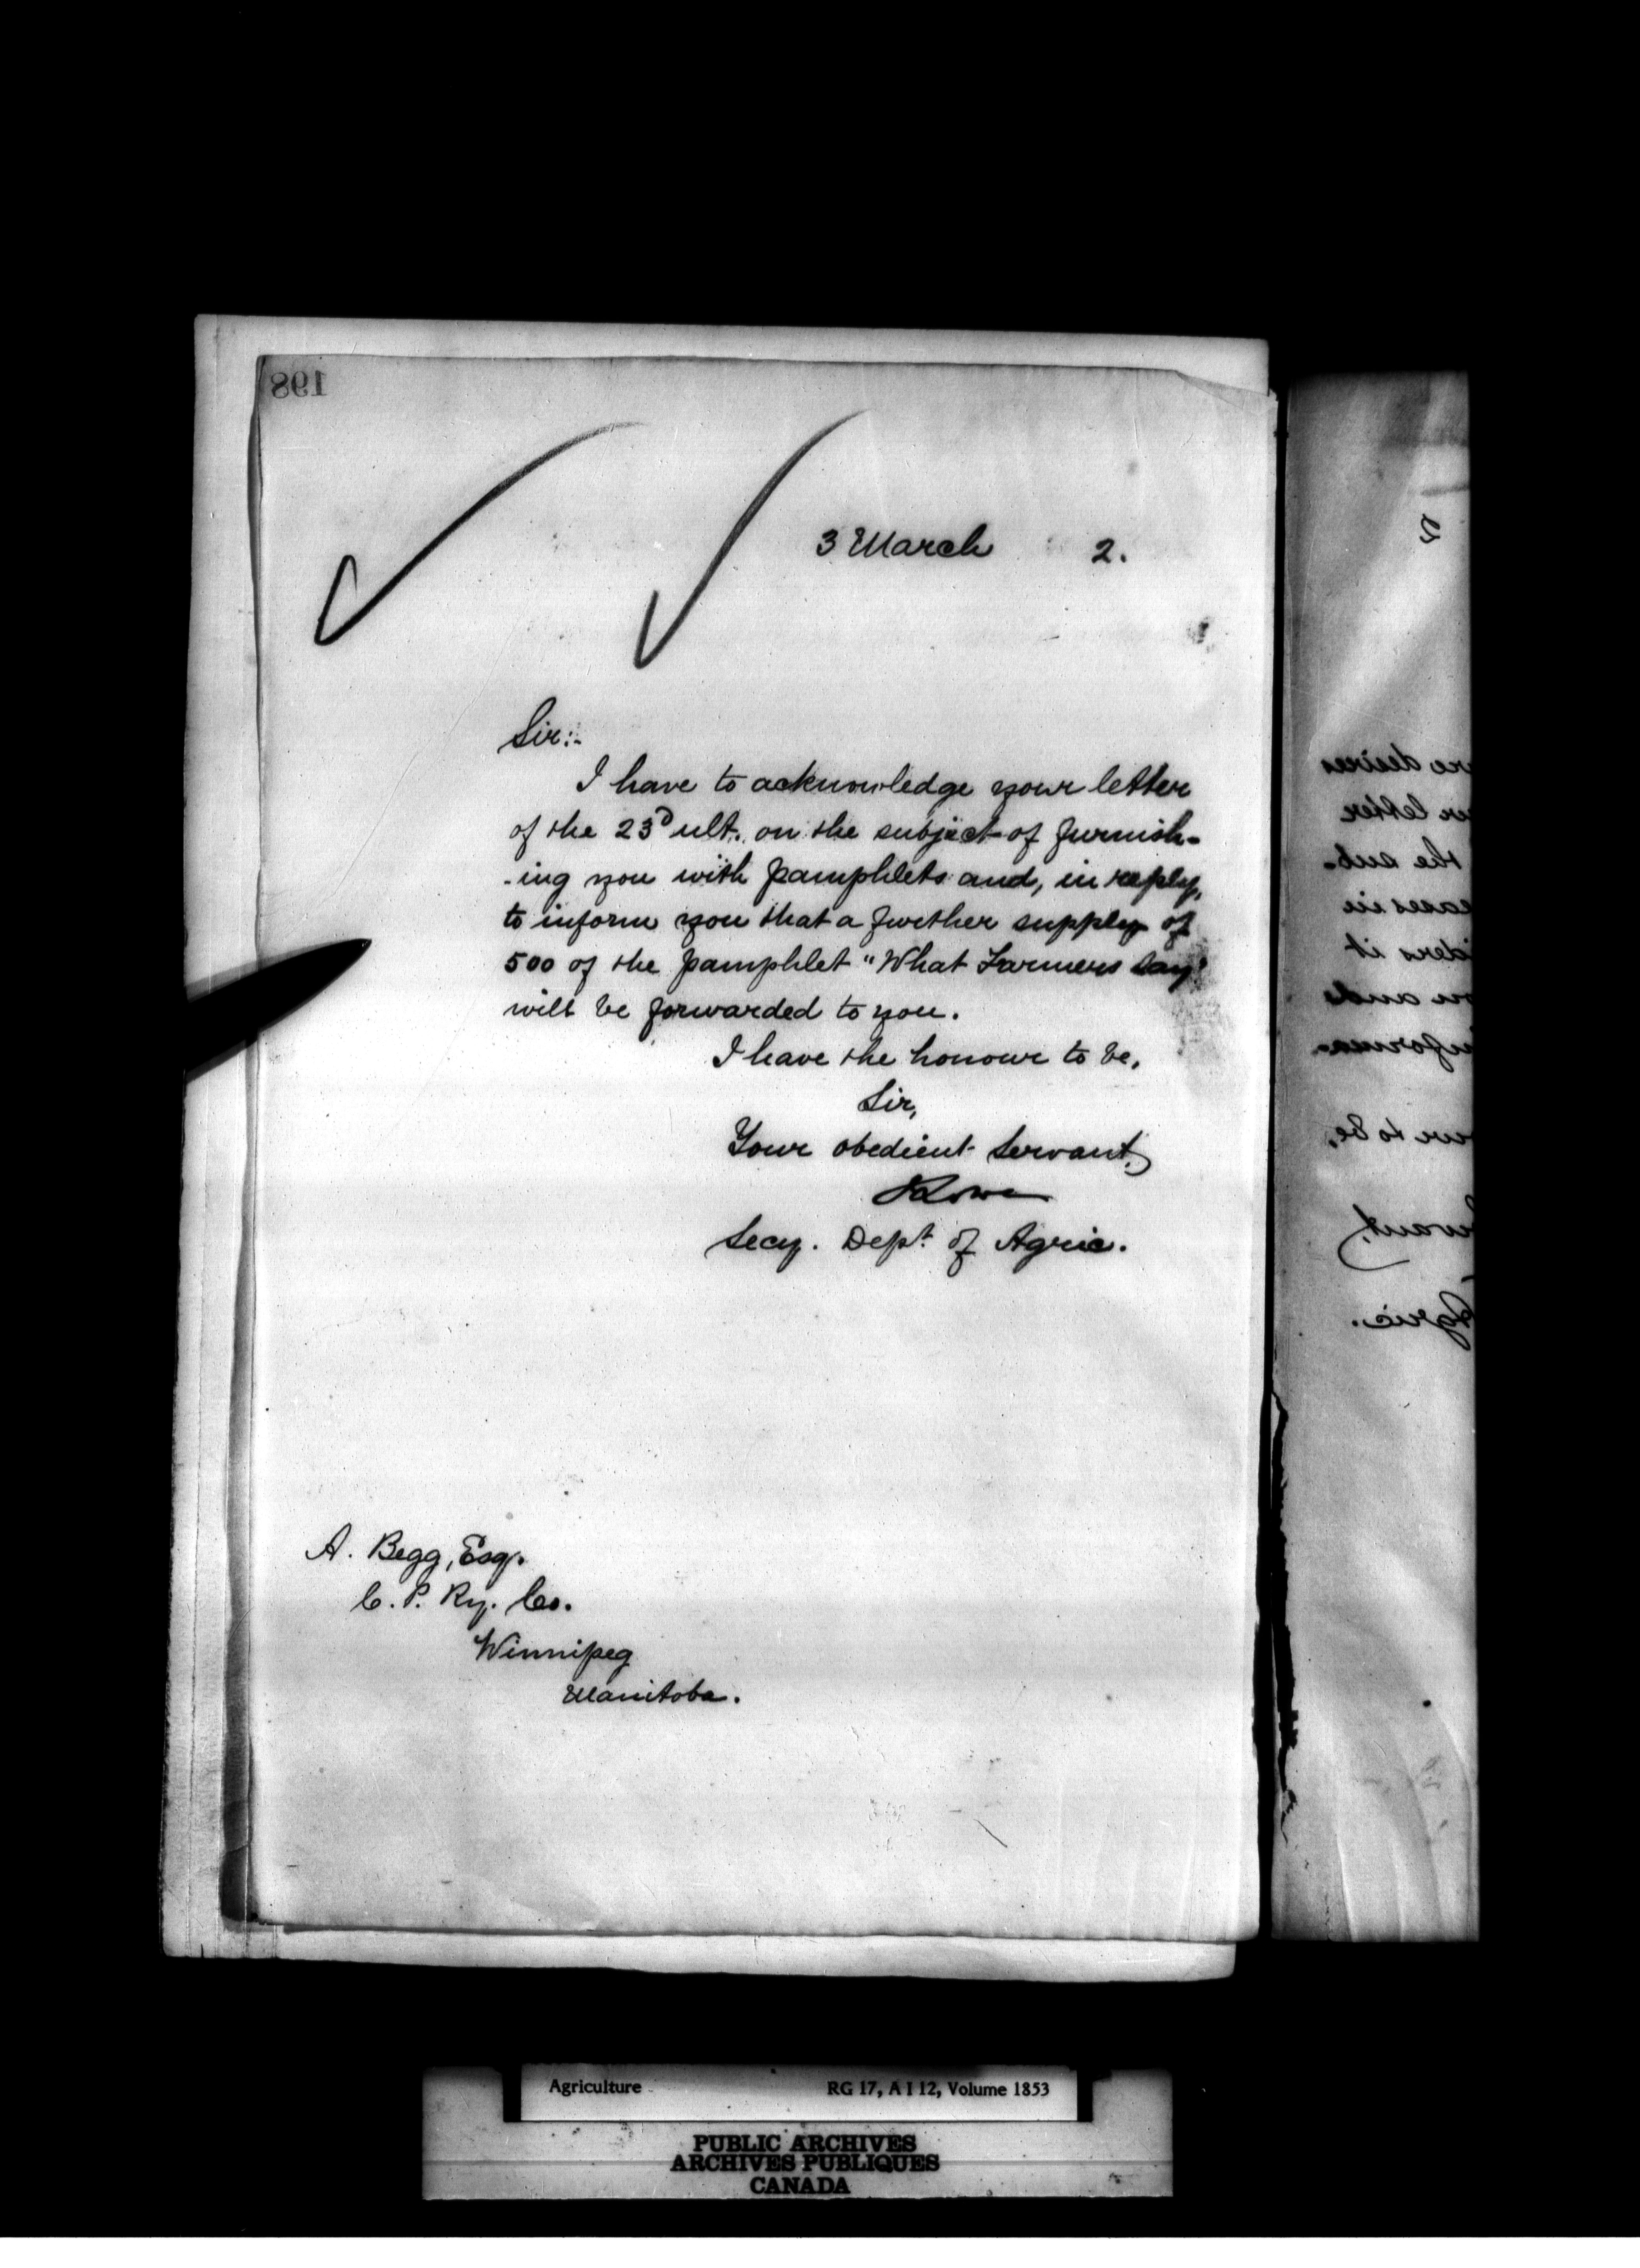 198
3 March 2.
Sir:-
I have to acknowledge your letter
of the 23D ult. on the subject of furnish-
-ing you with pamphlets and, in reply,
to inform you that a further supply of
500 of the pamphlet "What Farmers Say"
will be forwarded to you.
I have the honour to be,
Sir,
Your obedient Servant,
Secy. Dept. of Agric.
A. Begg, Esq.
C. P. Ry. Co.
Winnipeg
Manitoba.
2
desires
letter
the sub-
it
and
to be,
Agric.
Agriculture RG 17, A I 12, Volume 1853
PUBLIC ARCHIVES
ARCHIVES PUBLIQUES
CANADA